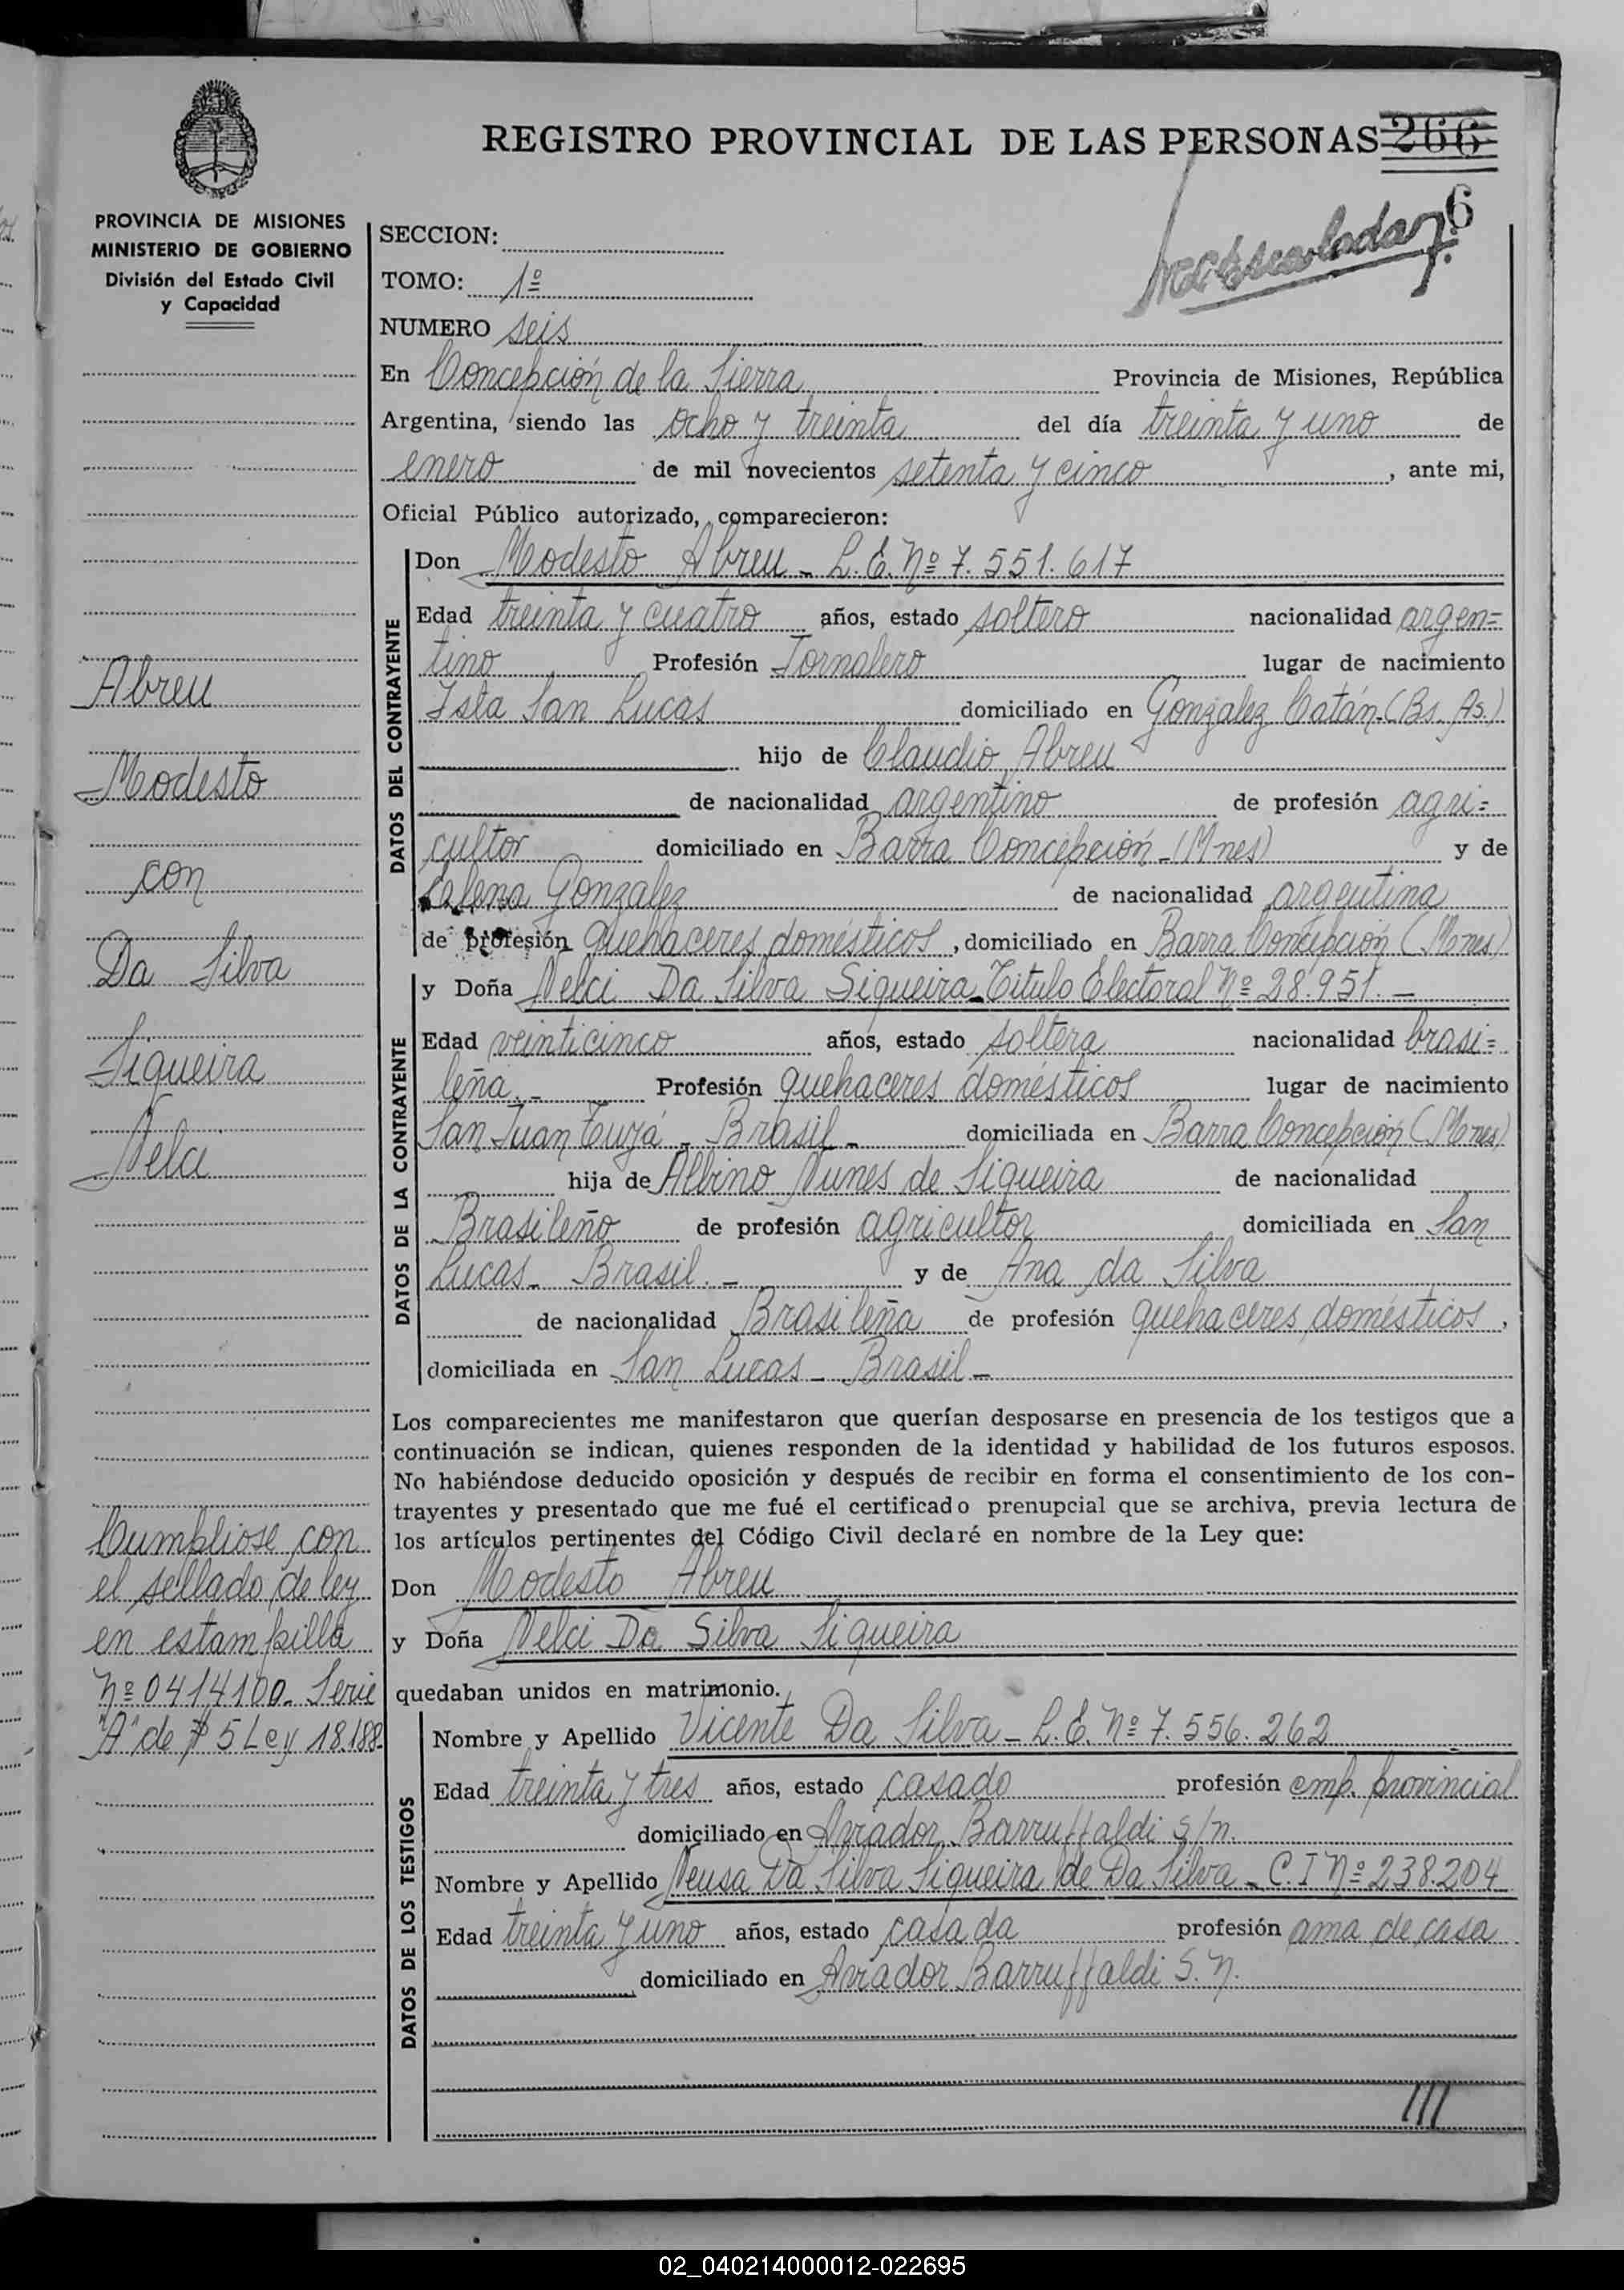 REGISTRO PROVINCIAL DE LAS PERSONAS 266
6
PROVINCIA DE MISIONES
MINISTERIO DE GOBIERNO
División del Estado Civil
y Capacidad
SECCION:
TOMO: 1º
NUMERO seis
En Concepción de la Sierra Provincia de Misiones, República
Argentina, siendo las ocho y treinta del día treinta y uno de
enero de mil novecientos setenta y cinco, ante mi,
Oficial Público autorizado, comparecieron:
DATOS DEL CONTRAYENTE
Don Modesto Abreu - L.E. Nº 7.551.617
Edad treinta y cuatro años, estado soltero nacionalidad argen=
tino Profesión Jornalero lugar de nacimiento
Isla San Lucas domiciliado en Gonzalez Catán-(Bs. As.)
hijo de Claudio Abreu
de nacionalidad argentino de profesión agri=
cultor domiciliado en Barra Concepción-(Mnes) y de
Gonzalez de nacionalidad argentina
de profesión quehaceres domésticos, domiciliado en Barra Concepción (Mnes)
DATOS DE LA CONTRAYENTE
y Doña Nelci Da Silva Siqueira - Titulo Electoral Nº 28.951. -
Edad veinticinco años, estado soltera nacionalidad brasi=
leña.- Profesión quehaceres domésticos lugar de nacimiento
San Juan Tuyá - Brasil - domiciliada en Barra Concepción (Mnes)
hija de Albino Nunes de Siqueira de nacionalidad
Brasileño de profesión agricultor domiciliada en San
Lucas - Brasil. - y de Ana da Silva
de nacionalidad Brasileña de profesión quehaceres domésticos,
domiciliada en San Lucas - Brasil -
Los comparecientes me manifestaron que querían desposarse en presencia de los testigos que a
continuación se indican, quienes responden de la identidad y habilidad de los futuros esposos.
No habiéndose deducido oposición y después de recibir en forma el consentimiento de los con-
trayentes y presentado que me fué el certificado prenupcial que se archiva, previa lectura de
los artículos pertinentes del Código Civil declaré en nombre de la Ley que:
Don Modesto Abreu
y Doña Nelci Da Silva Siqueira
quedaban unidos en matrimonio.
DATOS DE LOS TESTIGOS
Nombre y Apellido Vicente Da Silva - L.E. Nº 7.556.262
Edad treinta y tres años, estado casado profesión emp. provincial
domiciliado en Aviador Barruffaldi s/n.
Nombre y Apellido Neusa Da Silva Siqueira de Da Silva - C.I Nº 238.204
Edad treinta y uno años, estado casada profesión ama de casa
domiciliado en Aviador Barruffaldi S.N.
///
Abreu
Modesto
con
Da Silva
Siqueira
Nelci
Cumpliose con
el sellado de ley
en estampilla
Nº 0414100. Serie
"A" de $ 5 Ley 18.188
02_040214000012-022695